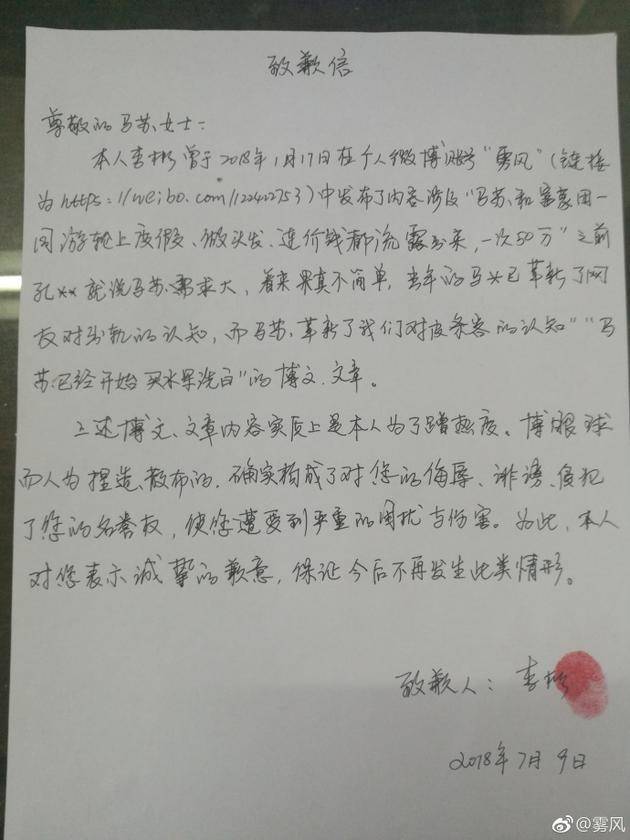 致歉信
尊敬的马苏女士:
本人李彬曾于2018年1月17日在个人微博账号"雾风"(链接
为https://weibo.com/122422753)中发布了内容涉及"马苏和富豪团一
同游轮上度假、做头发、连价钱都流露出来,一次50万"之前
孔**就说马苏需求大,看来果真不简单,当年的马*已革新了网
友对出轨的认知,而马苏革新了我们对皮条客的认知""马
苏已经开始买水军洗白"的博文、文章。
上述博文、文章内容实质上是本人为了蹭热度、博眼球
而人为捏造、散布的,确实构成了对您的侮辱、诽谤、侵犯
了您的名誉权,使您遭受到严重的困扰与伤害。为此,本人
对您表示诚挚的歉意,保证今后不再发生此类情形。
致歉人:李彬
2018年7月9日
@雾风